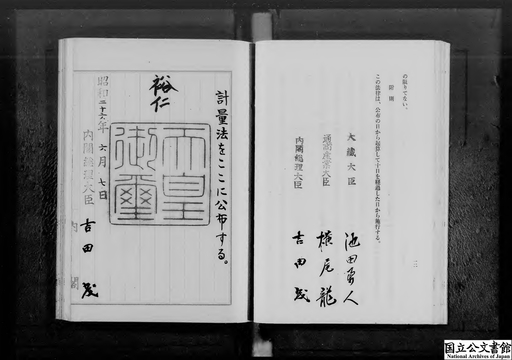 の限りでない。
附則
この法律は、公布の日から起算して十日を経過した日から施行する。
大藏大臣 池田勇人
通商産業大臣 横尾龍
内閣総理大臣 吉田茂
三
計量法をここに公布する。
裕仁
天皇御璽
昭和二十六年六月七日
内閣総理大臣 吉田茂
内閣
国立公文書館
National Archives of Japan